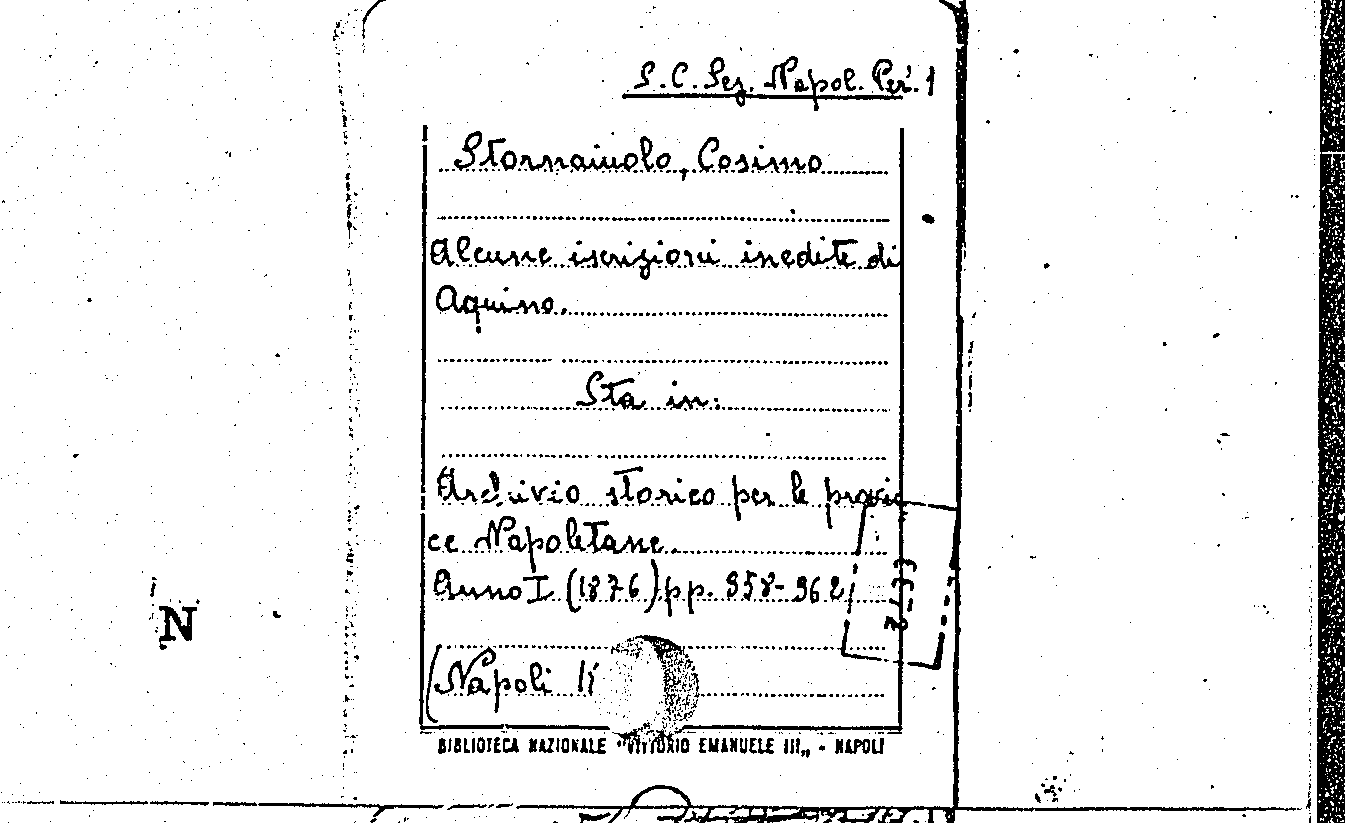 S. C. Sez. Napol. Per. 1
Stornaiuolo, Cosimo
Alcune iscrizioni inedite di
Aquino.
Sta in:
Archivio storico per le provin
ce Napoletane.
Anno I (1876) pp. 358-362
(Napoli
N
BIBLIOTECA NAZIONALE "VITTORIO EMANUELE III„ - NAPOLI